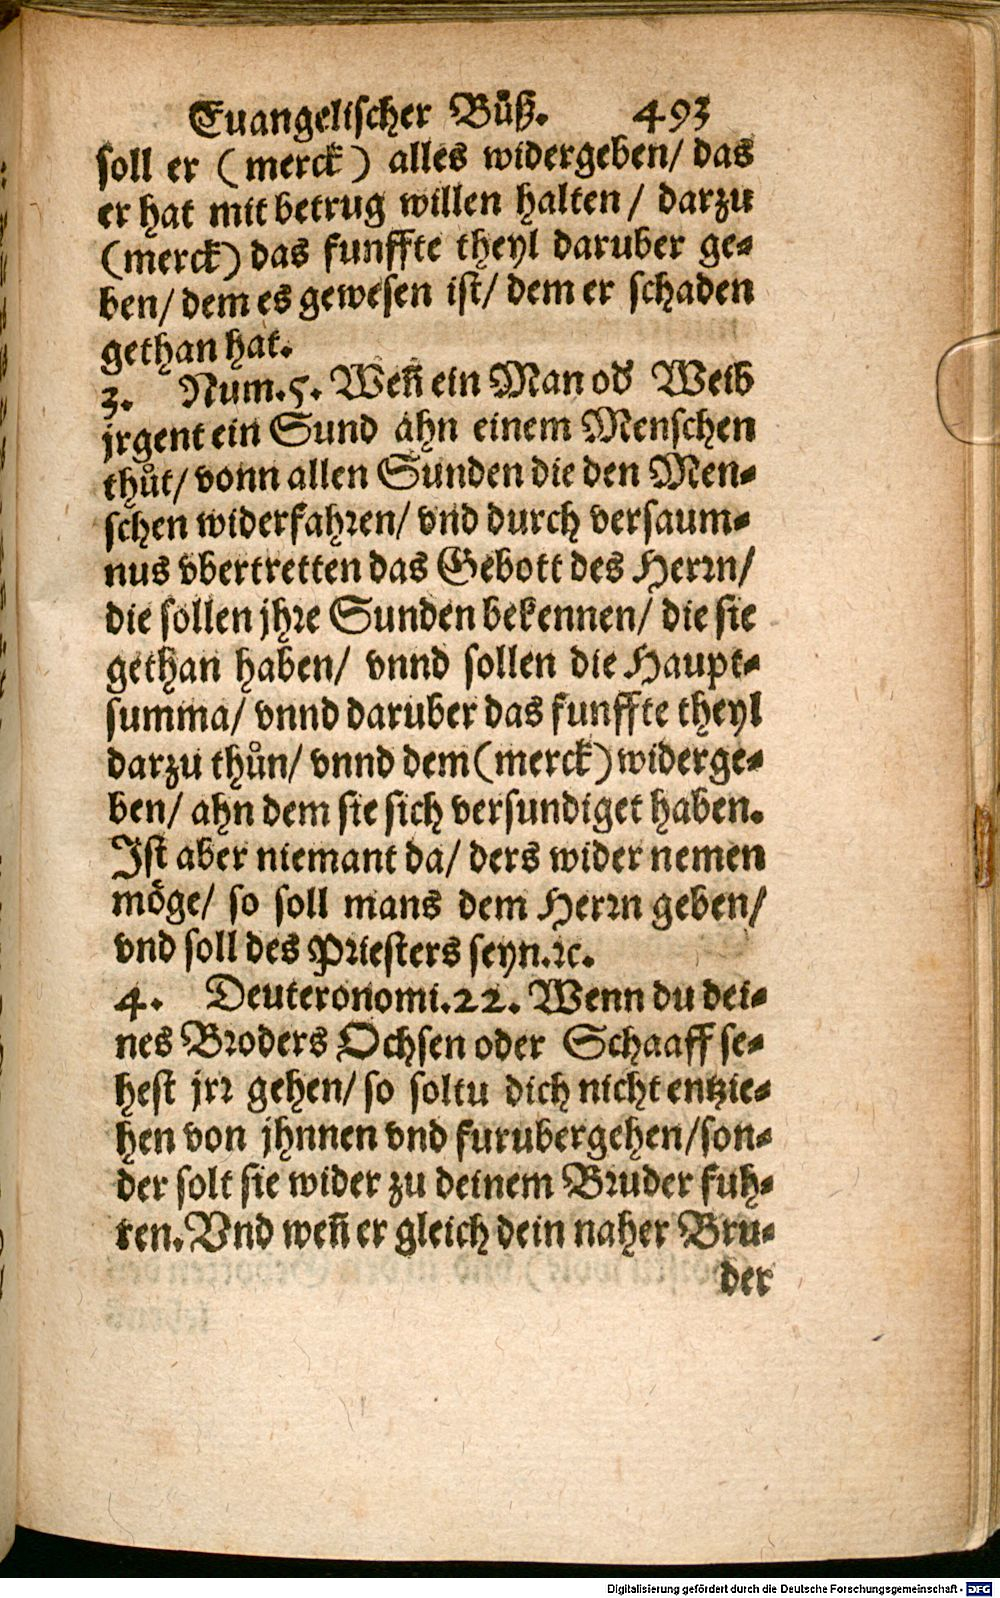 Euangelischer Bůß. 493
soll er (merck) alles widergeben/ das
er hat mit betrug willen halten/ darzu
(merck) das funffte theyl daruber ge-
ben/ dem es gewesen ist/ dem er schaden
gethan hat.
3. Num. 5. Weñ ein Man od Weib
jrgent ein Sund ahn einem Menschen
thůt/ vonn allen Sunden die den Men-
schen widerfahren/ vnd durch versaum-
nus vbertretten das Gebott des Herrn/
die sollen jhre Sunden bekennen/ die sie
gethan haben/ vnnd sollen die Haupt-
summa/ vnnd daruber das funffte theyl
darzu thůn/ vnnd dem (merck) widerge-
ben/ ahn dem sie sich versundiget haben.
Jst aber niemant da/ ders wider nemen
möge/ so soll mans dem Herrn geben/
vnd soll des Priesters seyn. ꝛc.
4. Deuteronomi. 22. Wenn du dei-
nes Broders Ochsen oder Schaaff se-
hest jrr gehen/ so soltu dich nicht entzie-
hen von jhnnen vnd furubergehen/ son-
der solt sie wider zu deinem Bruder fuh-
ren. Vnd weñ er gleich dein naher Bru-
der
Digitalisierung gefördert durch die Deutsche Forschungsgemeinschaft - DFG